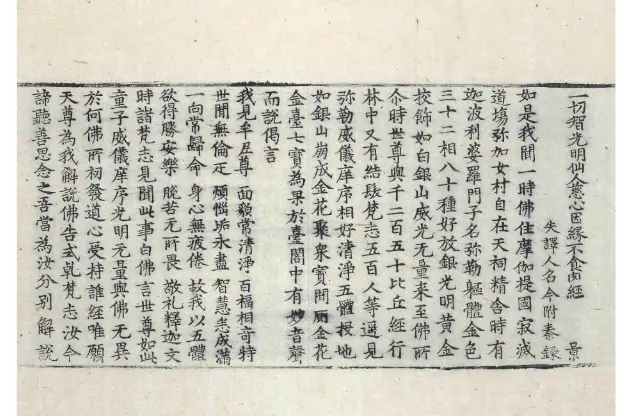 一切智光明仙人慈心因緣不食肉經 景
失譯人名今附秦錄
如是我聞一時佛住摩伽提國寂滅
道塲弥加女村自在天祠精舍時有
迦波利婆羅門子名弥勒軀體金色
三十二相八十種好放銀光明黃金
挍飾如白銀山威光无量来至佛所
尒時世尊與千二百五十比丘經行
林中又有結髮梵志五百人等遥見
弥勒威儀庠序相好清淨五體投地
如銀山崩成金花聚衆寶間廁金花
金臺七寶為果於臺閣中有妙音聲
而說偈言
我見牟尼尊 面貌常清淨 百福相奇特
世間無倫疋 煩惱垢永盡 智慧悉成滿
一向常歸命 身心無疲倦 故我以五體
欲得勝安樂 脫苦无所畏 敬礼釋迦文
時諸梵志見聞此事白佛言世尊如此
童子威儀庠序光明无量與佛无異
於何佛所初發道心受持誰經唯願
天尊為我解說佛告式乹梵志汝今
諦聽善思念之吾當為汝分別解說